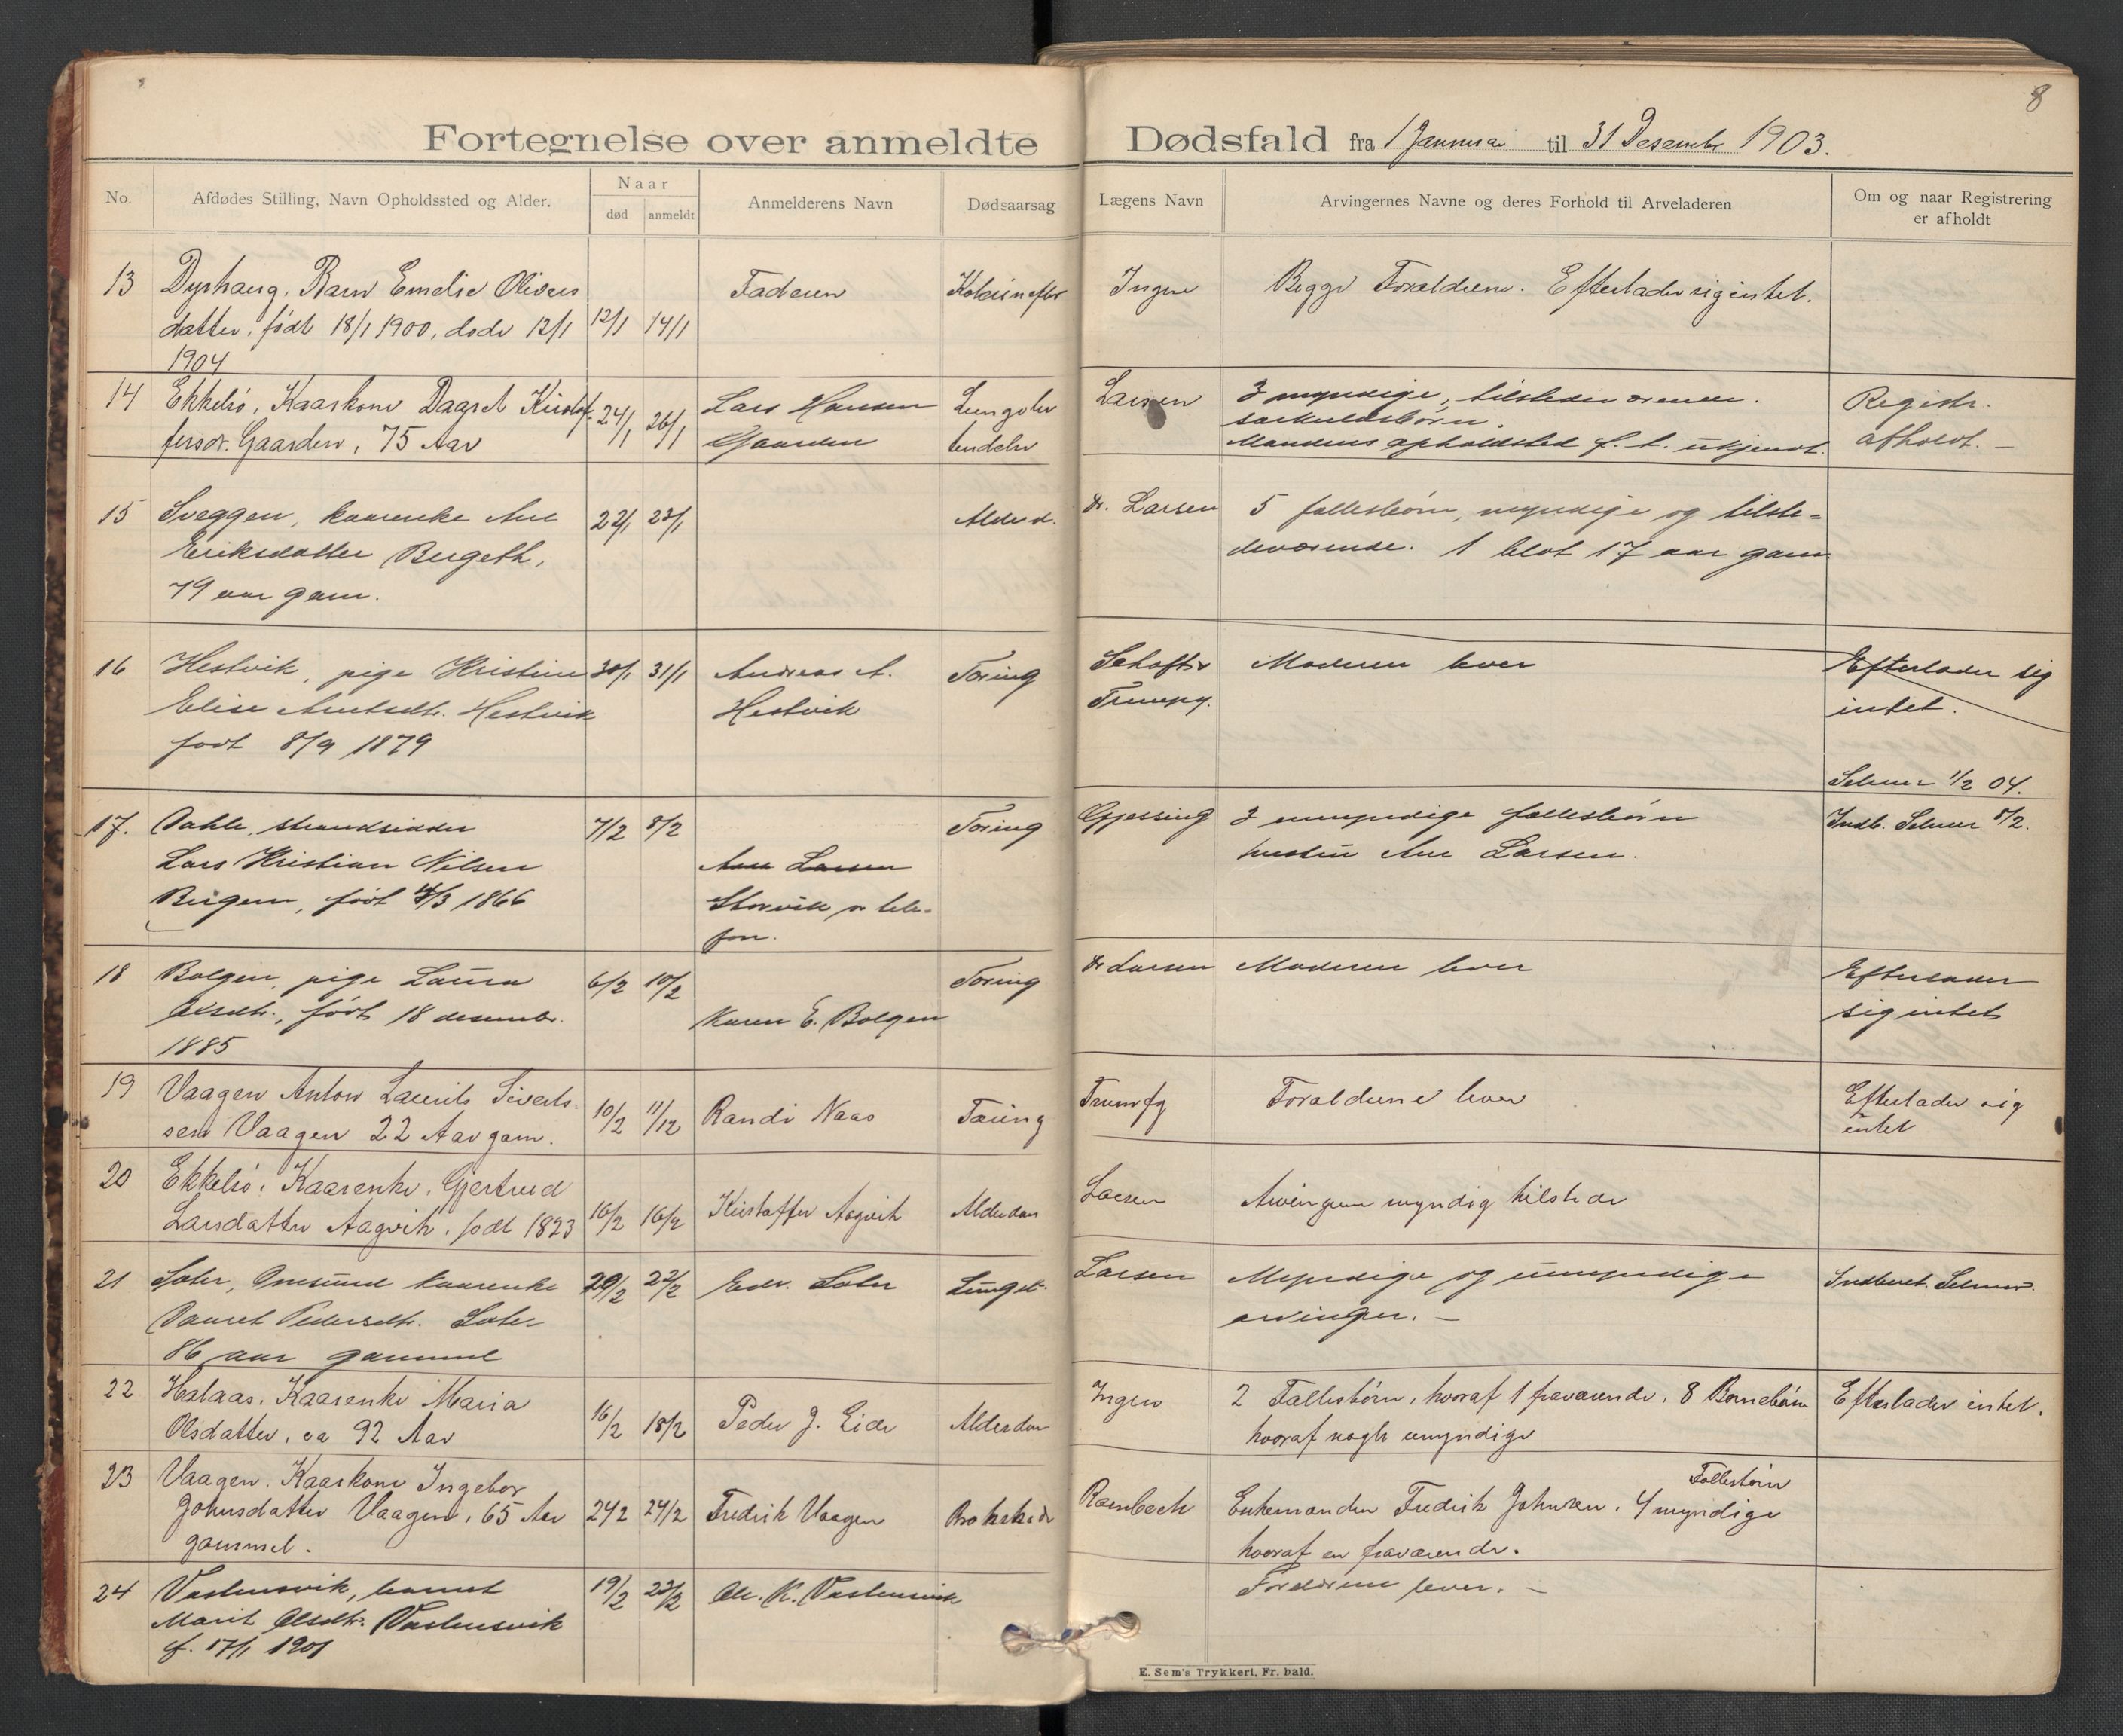 8
Fortegnelse over anmeldte Dødsfald fra 1 Januar til 31 Desember 1903.
No.
Afdødes Stilling, Navn Opholdssted og Alder.
Naar
død
anmeldt
Anmelderens Navn
Dødsaarsag
Lægens Navn
Arvingernes Navne og deres Forhold til Arveladeren
Om og naar Registrering
er afholdt
13
Dyrhaug. Barn Emelie Olivers
datter, født 18/1 1900, døde 12/1
1904
12/1
14/1
Faderen
Ingen
Begge Forældrene. Efterlader sig intet.
14
Ekkelsö, Kaarkone Daaret Kristof-
fersdr. Gaarden, 75 Aar
24/1
26/1
Lars Hansen
Gaarden
Lungebe
tendelse
Larsen
3 myndige, tilstedeværende
særkuldsbörn.
Mandens opholdsted f. t. ukjendt.
Registr.
afholdt. —
15
Sveggen, kaarenke Ane
Eriksdatter Bergeth,
79 aar gam.
22/1
23/1
Alderd.
Dr. Larsen
5 fællesbörn, myndige og tilste-
deværende. 1 blot 17 aar gam
16
Hestvik, pige Kristine
Elise Arntsdtr. Hestvik
født 8/9 1879
30/1
31/1
Andreas A.
Hestvik
Tæring
Trumpy.
Moderen lever
Efterlader sig
intet.
Selmer 1/2 04.
17.
Dahle, strandsidder
Lars Kristian Nilsen
Bergem, født 4/3 1866
7/2
8/2
Ane Larsen
Storvik pr tele-
fon.
Tæring
Gjessing
3 umyndige fællesbörn
hustru Ane Larsen.
Indb. Selmer 8/2.
18
Bolgen, pige Laura
Olsdtr., født 18 desembr.
1885
6/2
10/2
Karen E. Bolgen
Tæring
Dr Larsen
Moderen lever
Efterlader
sig intet
19
Vaagen Anton Laurits Siverts-
sen Vaagen 22 Aar gam.
10/2
11/12
Randi Naas
Tæring
Trumpy
Forældrene lever
Efterlader sig
intet
20
Ekkelsö. Kaarenke, Gjertrud
Larsdatter Aagvik, født 1823
16/2
16/2
Kristoffer Aagvik
Alderdom
Larsen
Arvingerne myndig tilstede
21
Sæter, Omsund kaarenke
Daaret Pedersdtr. Sæter
86 aar gammel
20/2
22/2
Edv. Sæter
Lunget.
Larsen
Myndige og umyndige
arvinger. —
Indberet. Selmer.
22
Halaas. Kaarenke Maria
Olsdatter, ca 92 Aar
16/2
18/2
Peder J. Eide
Alderdom
Ingen
2 Fællesbörn, hvoraf 1 fraværende, 8 Børnebörn
hvoraf nogle umyndige
Efterlader intet.
23
Vaagen. Kaarkone Ingebor
Johnsdatter Vaagen, 65 Aar
gammel.
24/2
24/2
Fredrik Vaagen
Brokskade
Rambech
Fællesbörn
Enkemanden Fredrik Johnsen. 4 myndige
hvoraf en fraværende.
24
Vadsensvik, barnet
Marit Olsdtr. Vadsensvik
f. 17/1 1901
19/2
23/2
Ole. K. Vadsensvik
Forældrene lever. —
E. Sem's Trykkeri, Fr. hald.